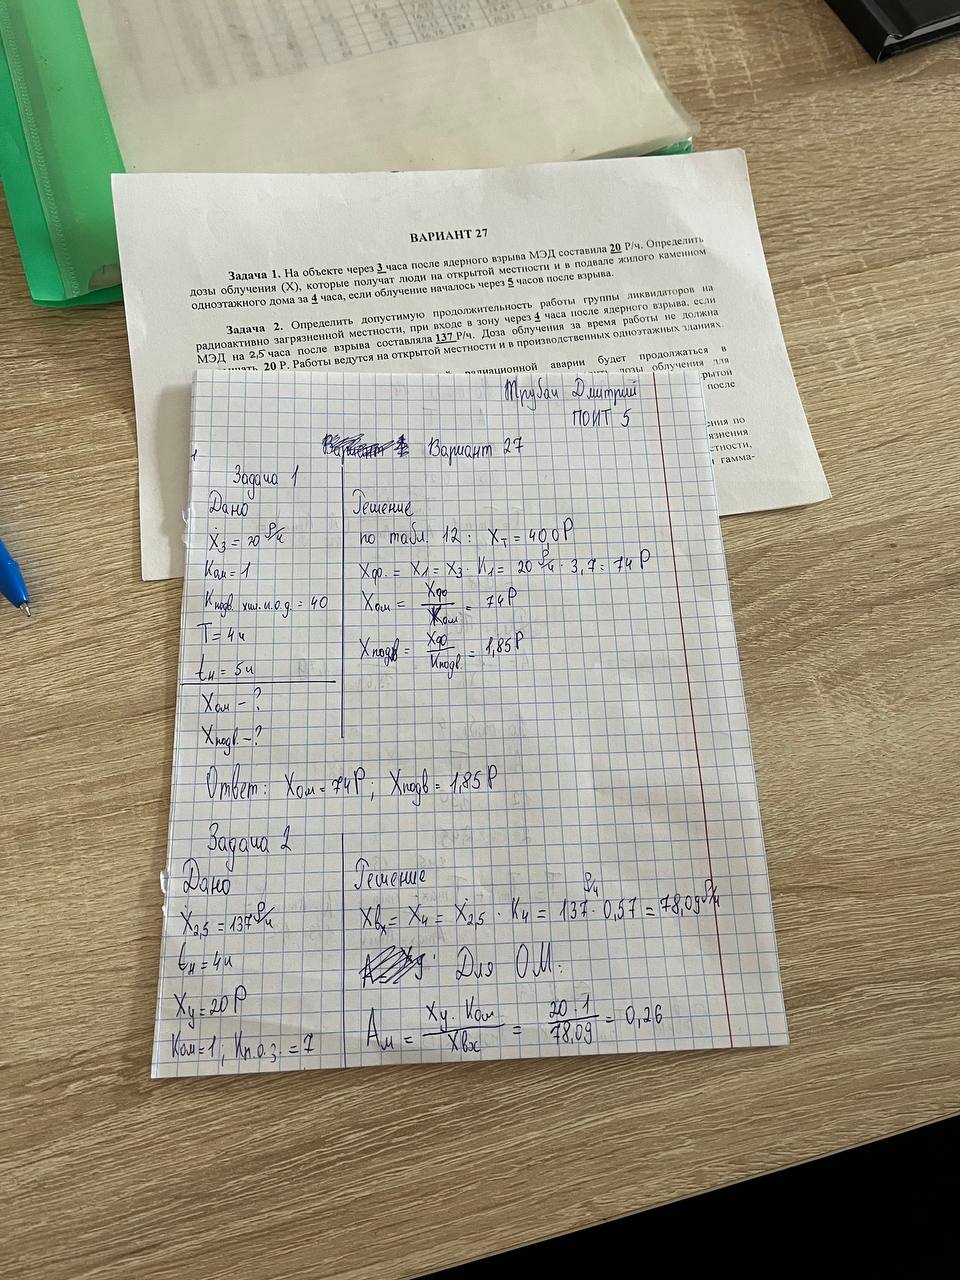 ВАРИАНТ 27
Задача 1. На объекте через 3 часа после ядерного взрыва МЭД составила 20 Р/ч. Определить
дозы облучения (Х), которые получат люди на открытой местности и в подвале жилого каменном
одноэтажного дома за 4 часа, если облучение началось через 5 часов после взрыва.
Задача 2. Определить допустимую продолжительность работы группы ликвидаторов на
радиоактивно загрязненной местности, при входе в зону через 4 часа после ядерного взрыва, если
МЭД на 2,5 часа после взрыва составляла 137 Р/ч. Доза облучения за время работы не должна
20 Р. Работы ведутся на открытой местности и в производственных одноэтажных зданиях.
радиационной аварии будет продолжаться в
дозы облучения для
после
по
гамма-
Трубач Дмитрий
ПОИТ 5
Вариант 27
Задача 1
Дано
Решение
Ẋ₃ = 20 Р/ч
по табл. 12: Xт = 400Р
Kом = 1
Xф. = X1 = X3 · K1 = 20 Р/ч · 3,7 = 74 Р
Kподв. жил.к.о.д. = 40
Xом = Xф/Kом = 74Р
T = 4ч
Xподв = Xф/Kподв = 1,85Р
tн = 5ч
Xом - ?
Xподв. - ?
Ответ: Xом = 74Р; Xподв = 1,85Р
Задача 2
Дано
Решение
Ẋ2,5 = 137 Р/ч
Ẋвх = Ẋ4 = Ẋ2,5 · K4 = 137 Р/ч · 0,57 = 78,09 Р/ч
tн = 4ч
Для ОМ:
Xу = 20Р
Aм = Xу · Kом/Xвх = 20 · 1/78,09 = 0,26
Kом = 1; Kп.о.з. = 7